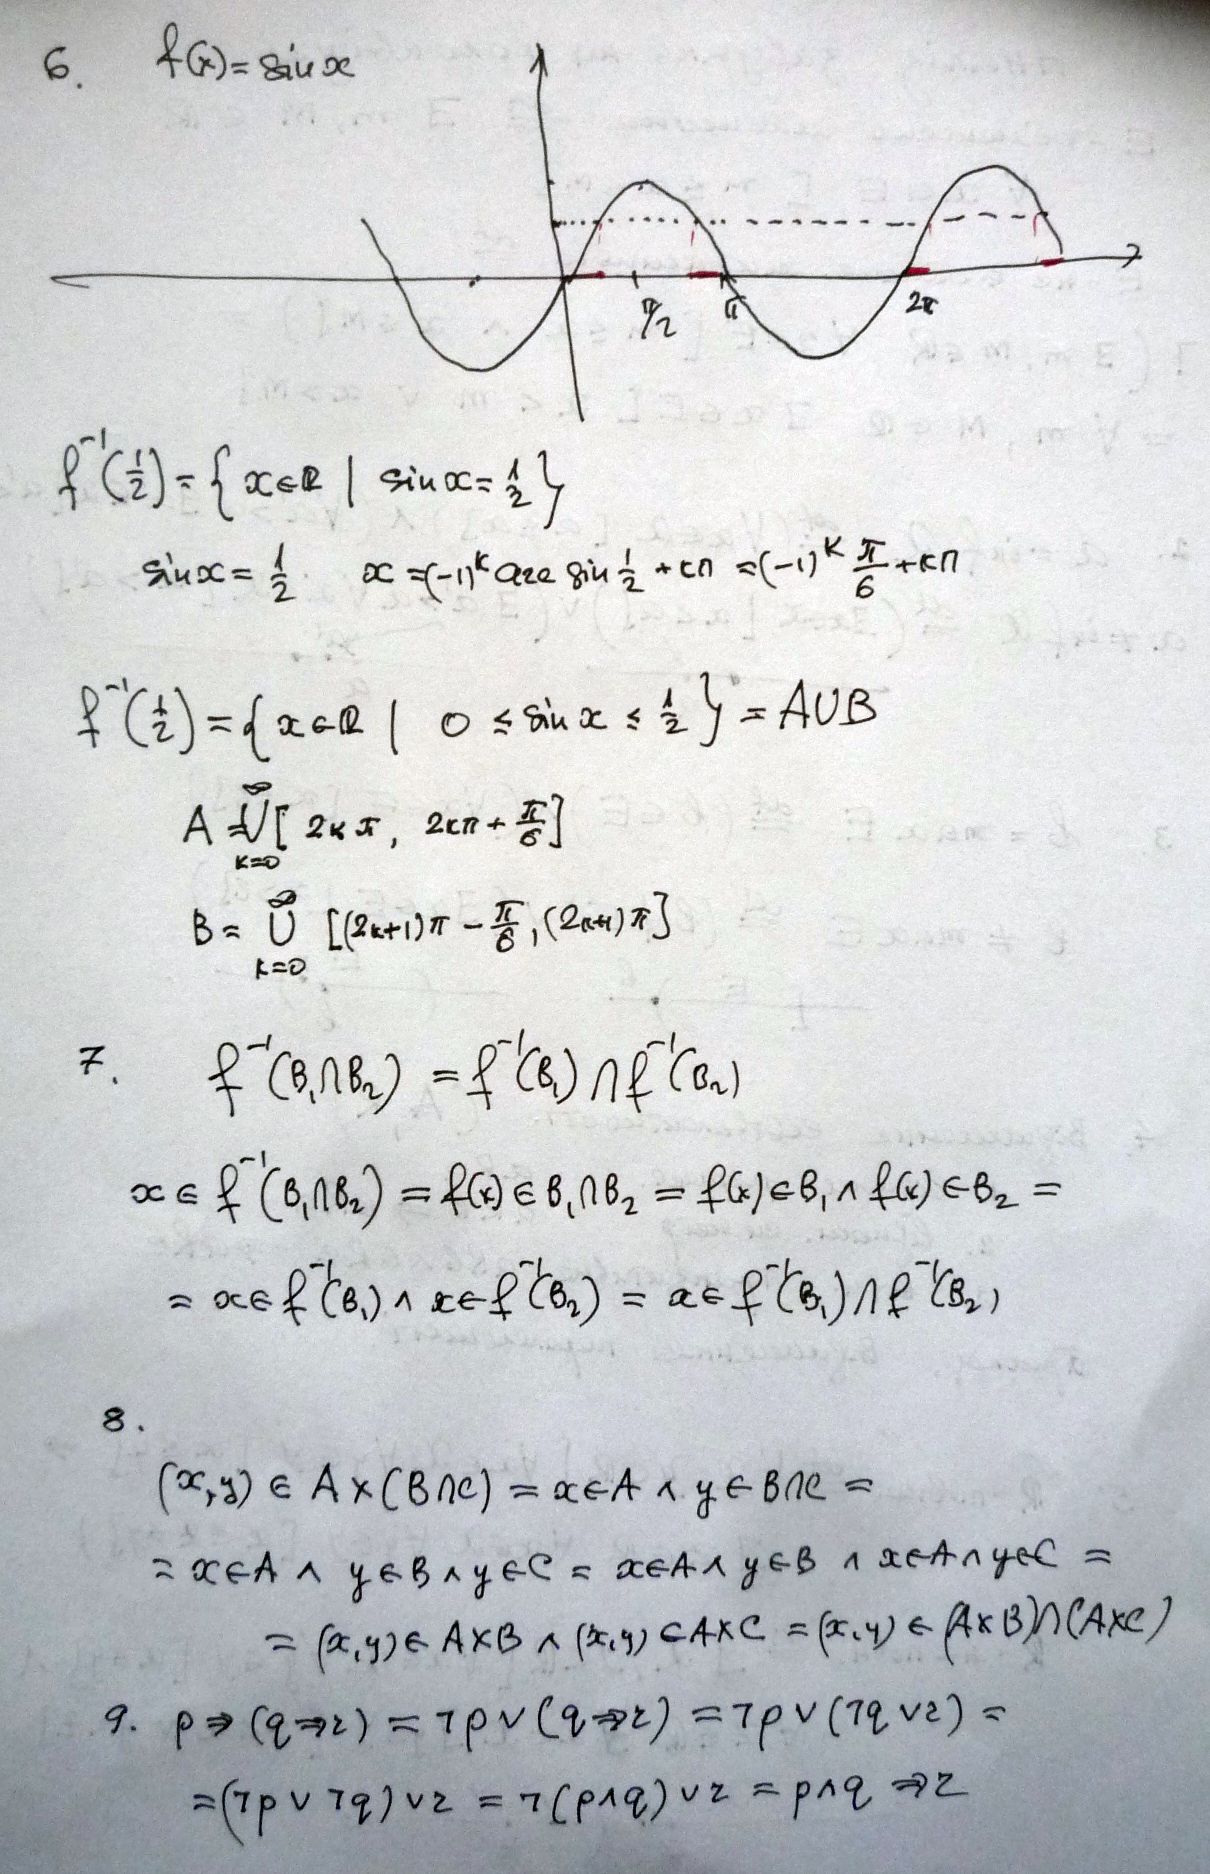 6. f(x)=sin x
π/2 π 2π
f⁻¹(1/2) = { x∈ℝ | sin x = 1/2 }
sin x = 1/2 x = (-1)ᵏ arc sin 1/2 + kπ = (-1)ᵏ π/6 + kπ
f⁻¹(1/2) = { x∈ℝ | 0 ≤ sin x ≤ 1/2 } = A∪B
A = ∞∪k=0 [ 2kπ, 2kπ + π/6 ]
B = ∞∪k=0 [(2k+1)π - π/6, (2k+1)π]
7. f⁻¹(B₁∩B₂) = f⁻¹(B₁) ∩ f⁻¹(B₂)
x ∈ f⁻¹(B₁∩B₂) = f(x) ∈ B₁∩B₂ = f(x) ∈ B₁ ∧ f(x) ∈ B₂ =
= x ∈ f⁻¹(B₁) ∧ x ∈ f⁻¹(B₂) = x ∈ f⁻¹(B₁) ∩ f⁻¹(B₂)
8.
(x,y) ∈ A×(B∩C) = x∈A ∧ y∈B∩C =
= x∈A ∧ y∈B ∧ y∈C = x∈A ∧ y∈B ∧ x∈A ∧ y∈C =
= (x,y) ∈ A×B ∧ (x,y) ∈ A×C = (x,y) ∈ (A×B)∩(A×C)
9. p ⇒ (q ⇒ r) = ¬p ∨ (q ⇒ r) = ¬p ∨ (¬q ∨ r) =
= (¬p ∨ ¬q) ∨ r = ¬(p∧q) ∨ r = p∧q ⇒ r